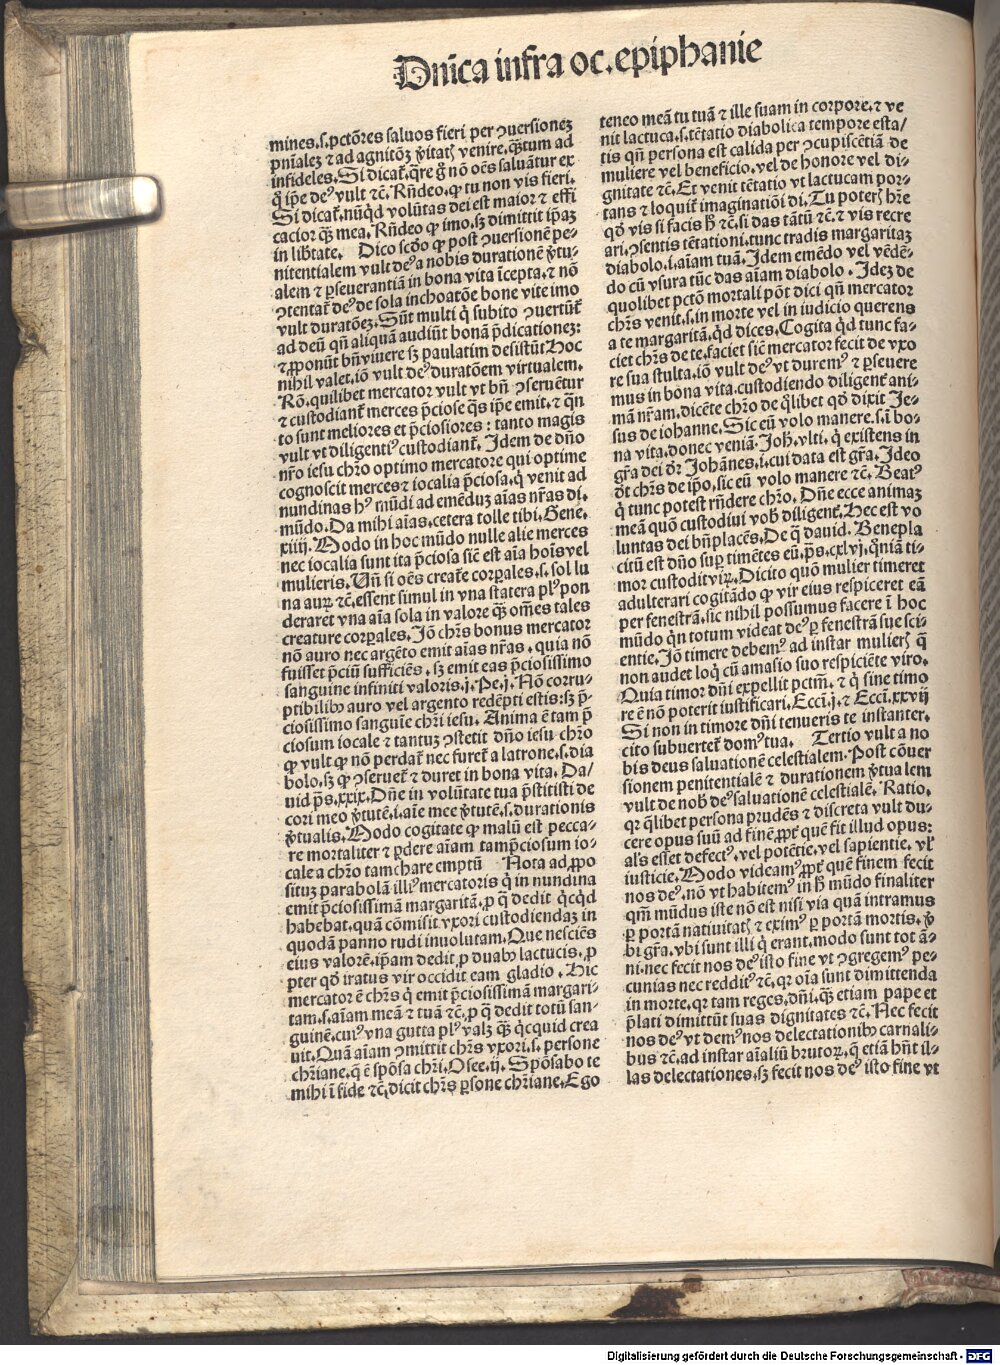 Dnĩca infra oc.epiphanie
mines.s.pctõres saluos fieri per ꝯuersionez
pnĩalez ⁊ ad agnitõz ỽitatꝭ venire.qꝫtum ad
infideles.Si dicat᷑.q̃re gͦ nõ oẽs saluãtur ex
q̊ ip̃e deꝰ vult ⁊c̃.Rñdeo.ꝙ tu non vis fieri.
Si dicat᷑.nũqͥd volũtas dei est maior ⁊ effi
cacior qꝫ mea.Rñdeo ꝙ imo.sꝫ dimittit ip̃aꝫ
in lib̃tate. Dico scďo ꝙ post ꝯuersionẽ pe⸗
nitentialem vult deꝰ a nobis durationẽ ỽtu⸗
alem ⁊ ꝑseuerantiã in bona vita ĩcepta.⁊ nõ
ꝯtentat᷑ deꝰ de sola inchoatõe bone vite imo
vult duratõez.Sũt multi qͥ subito ꝯuertũt᷑
ad deũ qñ aliquã audiũt bonã p̃dicationez:
⁊ ꝓponũt bñ viuere sꝫ paulatim desistũt Hoc
nihil valet.iõ vult deꝰ duratõem virtualem.
Rõ.quilibet mercator vult vt bñ ꝯseruẽtur
⁊ custodiant᷑ merces p̃ciose q̃s ip̃e emit.⁊ q̃n
to sunt meliores et p̃ciosiores : tanto magis
vult vt diligentiꝰ custodiant᷑. Idem de dño
nr̃o iesu chr̃o optimo mercatore qui optime
cognoscit merces ⁊ iocalia p̃ciosa.qͥ venit ad
nundinas hꝰ mũdi ad emẽduꝫ aĩas nr̃as di.
mũdo.Da mihi aĩas.cetera tolle tibi.Gene.
xiiij.Modo in hoc mũdo nulle alie merces
nec iocalia sunt ita p̃ciosa sic̃ est aĩa hoĩs vel
mulieris.Uñ si oẽs creat᷑e corꝑales.s.sol lu
na aurꝝ ⁊c̃.essent simul in vna statera plꝰ pon
deraret vna aĩa sola in valore qꝫ om̃es tales
creature corꝑales.Iõ chr̃s bonus mercator
nõ auro nec argẽto emit aĩas nr̃as.quia nõ
fuisset p̃ciũ sufficiẽs.sꝫ emit eas p̃ciosissimo
sanguine infiniti valoris.j.Pe.j.Nõ corru⸗
ptibilibꝰ auro vel argento redẽpti estis:sꝫ p̃⸗
ciosissimo sanguĩe chr̃i iesu. Anima ẽ tam p̃
ciosum iocale ⁊ tantuꝫ ꝯstetit dño iesu chr̃o
ꝙ vult ꝙ nõ perdat᷑ nec furet᷑ a latrone.s.dia
bolo.sꝫ ꝙ ꝯseruet᷑ ⁊ duret in bona vita. Da/
uid p̃s.xxix.Dñe in volũtate tua p̃stitisti de
cori meo ỽtutẽ.i.aĩe mee ỽtutẽ.s.durationis
ỽtualis.Modo cogitate ꝙ malũ est pecca⸗
re mortaliter ⁊ ꝑdere aĩam tamp̃ciosum io⸗
cale a chr̃o tam chare emptũ Nota ad ꝓpo
situꝫ parabolã illiꝰ mercatoris qͥ in nundina
emit p̃ciosissimã margaritã.ꝓ q̃ dedit qͥcqͥd
habebat.quã cõmisit vxori custodiendaꝫ in
quodã panno rudi inuolutam.Que nesciẽs
eius valorẽ.ip̃am dedit ꝓ duabꝰ lactucis.ꝓ
pter qõ iratus vir occidit eam gladio . Hic
mercator ẽ chr̃s qͥ emit p̃ciosissimã margari⸗
tam.s.aĩam meã ⁊ tuã ⁊c̃.ꝓ q̃ dedit totũ san⸗
guinẽ.cuiꝰ vna gutta plꝰ valꝫ qꝫ qͥcquid crea
uit.Quã aĩam ꝯmittit chr̃s vxori.s. persone
chr̃iane.q̃ ẽ spõsa chr̃i.Osee.ij. Spõsabo te
mihi ĩ fide ⁊c̃.dicit chr̃s ꝑsone chr̃iane.Ego
teneo meã tu tuã ⁊ ille suam in corpore.⁊ ve
nit lactuca.s.tẽtatio diabolica tempore esta/
tis qñ persona est calida per ꝯcupiscẽtiã de
muliere vel beneficio.vel de honore vel di⸗
gnitate ⁊c̃.Et venit tẽtatio vt lactucam por⸗
tans ⁊ loquit᷑ imaginatiõi di.Tu poterꝭ hr̃e
qõ vis si facis h̃ ⁊c̃.si das tãtũ ⁊c̃.⁊ vis recre
ari.ꝯsentis tẽtationi.tunc tradis margaritaꝫ
diabolo.i.aĩam tuã.Idem emẽdo vel vẽdẽ⸗
do cũ vsura tũc das aĩam diabolo . Idez de
quolibet pctõ mortali põt dici qñ mercator
chr̃s venit.s.in morte vel in iudicio querens
a te margaritã.qͥd dices.Cogita qͥd tunc fa⸗
ciet chr̃s de te.faciet sic̃ mercator fecit de vxo
re sua stulta.iõ vult deꝰ vt duremꝰ ⁊ ꝑseuere
mus in bõna vita.custodiendo diligent᷑ ani⸗
mã nr̃am.dicẽte chr̃o de q̃libet qõ dixit Ie⸗
sus de iohanne.Sic eũ volo manere.s.ĩ bo⸗
na vita.donec veniã.Ioh̃.vlti.qͥ existens in
gr̃a dei ďr Iohãnes.i.cui data est gr̃a.Ideo
ďt chr̃s de ip̃o.sic eũ volo manere ⁊c̃. Beatꝰ
qͥ tunc potest rñdere chr̃o. Dñe ecce animaꝫ
meã quõ custodiui vob̃ diligent᷑.Hec est vo
luntas dei bñplacẽs.De q̃ dauid. Benepla
citũ est dño suꝑ timẽtes eũ.p̃s.cxlvj.qm̃iã ti⸗
mor custodit virꝝ.Dicito quõ mulier timeret
adulterari cogitãdo ꝙ vir eius respiceret eã
per fenestrã.sic nihil possumus facere ĩ hoc
mũdo qͥn totum videat deꝰ ꝑ fenestrã sue sci⸗
entie.Iõ timere debemꝰ ad instar mulierꝭ q̃
non audet loqͥ cũ amasio suo respiciẽte viro.
Quia timor dñi expellit pctm̃.⁊ qͥ sine timo
re ẽ nõ poterit iustificari.Ecci.j.⁊ Ecci.xxvij
Si non in timore dñi tenueris te instanter.
cito subuertet᷑ domꝰ tua. Tertio vult a no
bis deus saluationẽ celestialem.Post cõuer
sionem penitentialẽ ⁊ durationem ỽtualem
vult de nob̃ deꝰ saluationẽ celestialẽ. Ratio.
qꝛ q̃libet persona prudẽs ⁊ discreta vult du⸗
cere opus suũ ad finẽ ꝓpt᷑ quẽ fit illud opus:
al̃s esset defectꝰ.vel potẽtie.vel sapientie. vl̃
iusticie.Modo videamꝰ ꝓpt᷑ quẽ finem fecit
nos deꝰ.nõ vt habitemꝰ in h̃ mũdo finaliter
qm̃ mũdus iste nõ est nisi via quã intramus
ꝑ portã natiuitatꝭ ⁊ eximꝰ ꝑ portã mortis.ỽ
bi gr̃a.vbi sunt illi qͥ erant.modo sunt tot ã⸗
ni.nec fecit nos deꝰ isto fine vt ꝯgregemꝰ pe⸗
cunias nec redditꝰ ⁊c̃.qꝛ oĩa sunt dimittenda
in morte.qꝛ tam reges.dñi.qꝫ etiam pape et
p̃lati dimittũt suas dignitates ⁊c̃.Nec fecit
nos deꝰ vt demꝰ nos delectationibꝰ carnali⸗
bus ⁊c̃.ad instar aĩaliũ brutorꝝ.q̃ etiã hñt il⸗
las delectationes.sꝫ fecit nos deꝰ isto fine vt
Digitalisierung gefördert durch die Deutsche Forschungsgemeinschaft - DFG